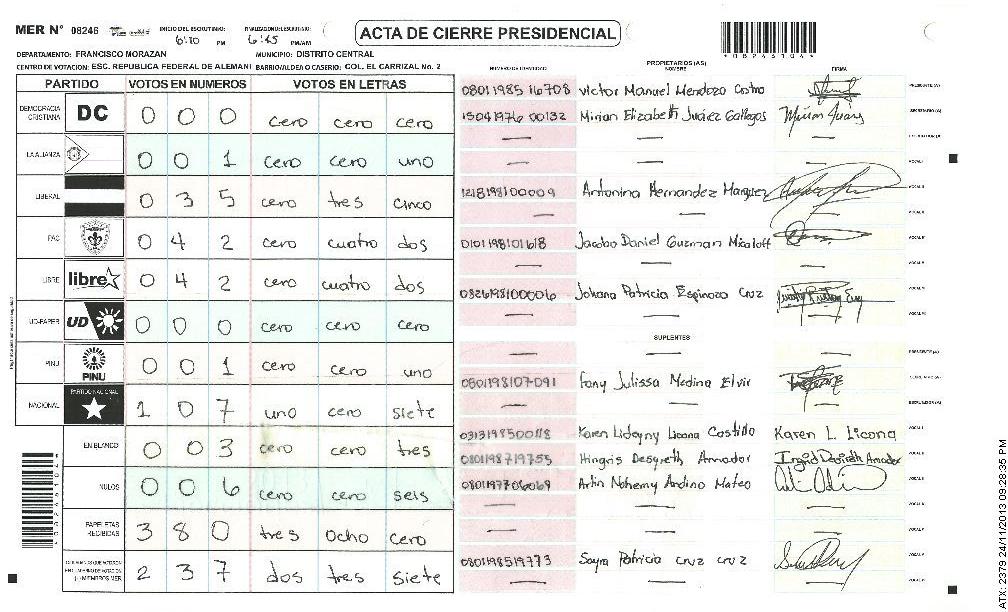 MER N° 08246
INICIO DEL ESCRUTINIO: 6:10 PM
FINALIZACION ESCRUTINIO: 6:45 PM/AM
ACTA DE CIERRE PRESIDENCIAL
DEPARTAMENTO: FRANCISCO MORAZAN MUNICIPIO: DISTRITO CENTRAL
CENTRO DE VOTACION: ESC. REPUBLICA FEDERAL DE ALEMANI BARRIO/ALDEA O CASERIO: COL. EL CARRIZAL No. 2
PARTIDO VOTOS EN NUMEROS VOTOS EN LETRAS
DEMOCRACIA CRISTIANA DC 0 0 0 cero cero cero
LA ALIANZA 0 0 1 cero cero uno
LIBERAL 0 3 5 cero tres cinco
PAC 0 4 2 cero cuatro dos
LIBRE libre 0 4 2 cero cuatro dos
UD-FAPER UD 0 0 0 cero cero cero
PINU PINU 0 0 1 cero cero uno
NACIONAL PARTIDO NACIONAL 1 0 7 uno cero siete
EN BLANCO 0 0 3 cero cero tres
NULOS 0 0 6 cero cero seis
PAPELETAS RECIBIDAS 3 8 0 tres ocho cero
CIUDADANOS QUE VOTARON 2 3 7 dos tres siete
NUMERO DE IDENTIDAD PROPIETARIOS (AS) NOMBRE FIRMA
08011985 16708 Victor Manuel Mendoza Castro PRESIDENTE (A)
15041976 00132 Mirian Elizabeth Juárez Gallegos Mirian Juarez SECRETARIO (A)
1218198100009 Antonina Hernandez Marquez
0101198101618 Jacobo Daniel Guzman
0826198100006 Johana Patricia Espinoza Cruz
SUPLENTES
0801198107091 Fany Julissa Medina Elvir
0313198500118 Karen Lideyny Licona Castillo Karen L. Licona
0801198719755 Hingris Desyreth Amador
0801197706069 Artin Nohemy Andino Mateo
0801198519773 Sayra Patricia cruz cruz
ATX: 2379 24/11/2013 09:28:35 PM